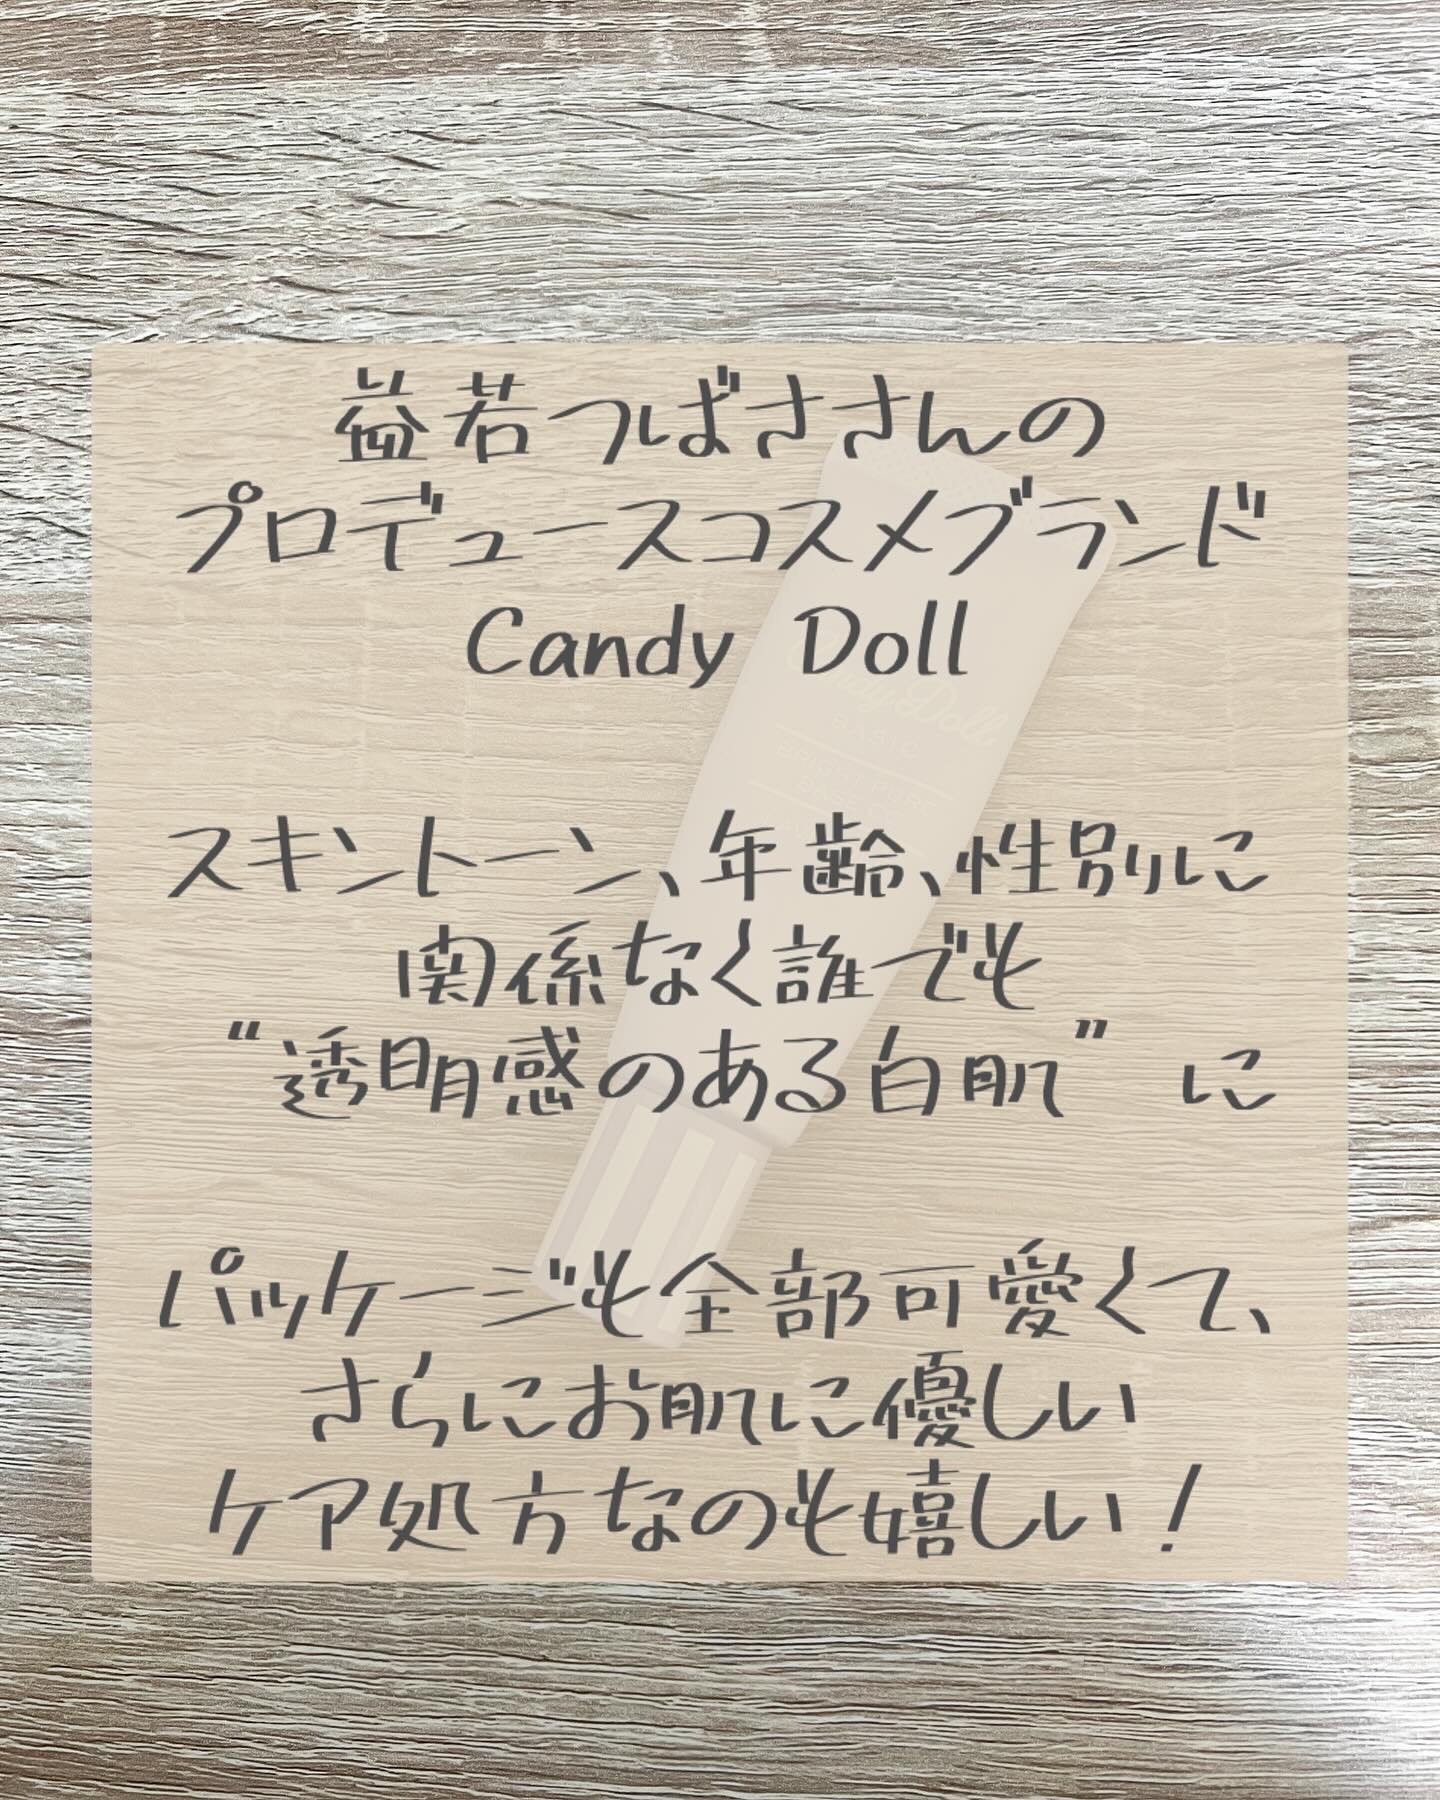 益若つばささんの
プロデュースコスメブランド
Candy Doll
スキントーン、年齢、性別に
関係なく誰でも
“透明感のある白肌” に
パッケージも全部可愛くて、
さらにお肌に優しい
ケア処方なのも嬉しい！